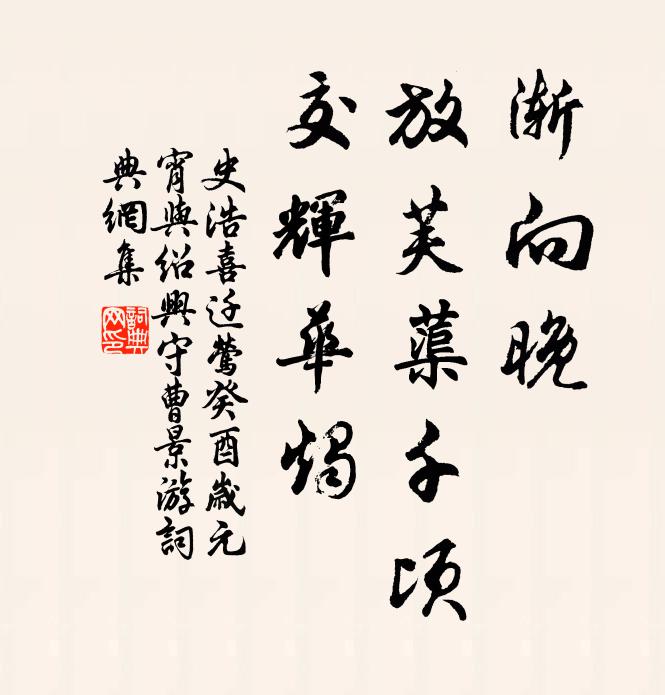 漸向晚
放芙蕖千頃
交輝華燭
史浩喜迁鶯癸酉歲元
宵與紹興守曹景游詞
典網集
詞典
网印